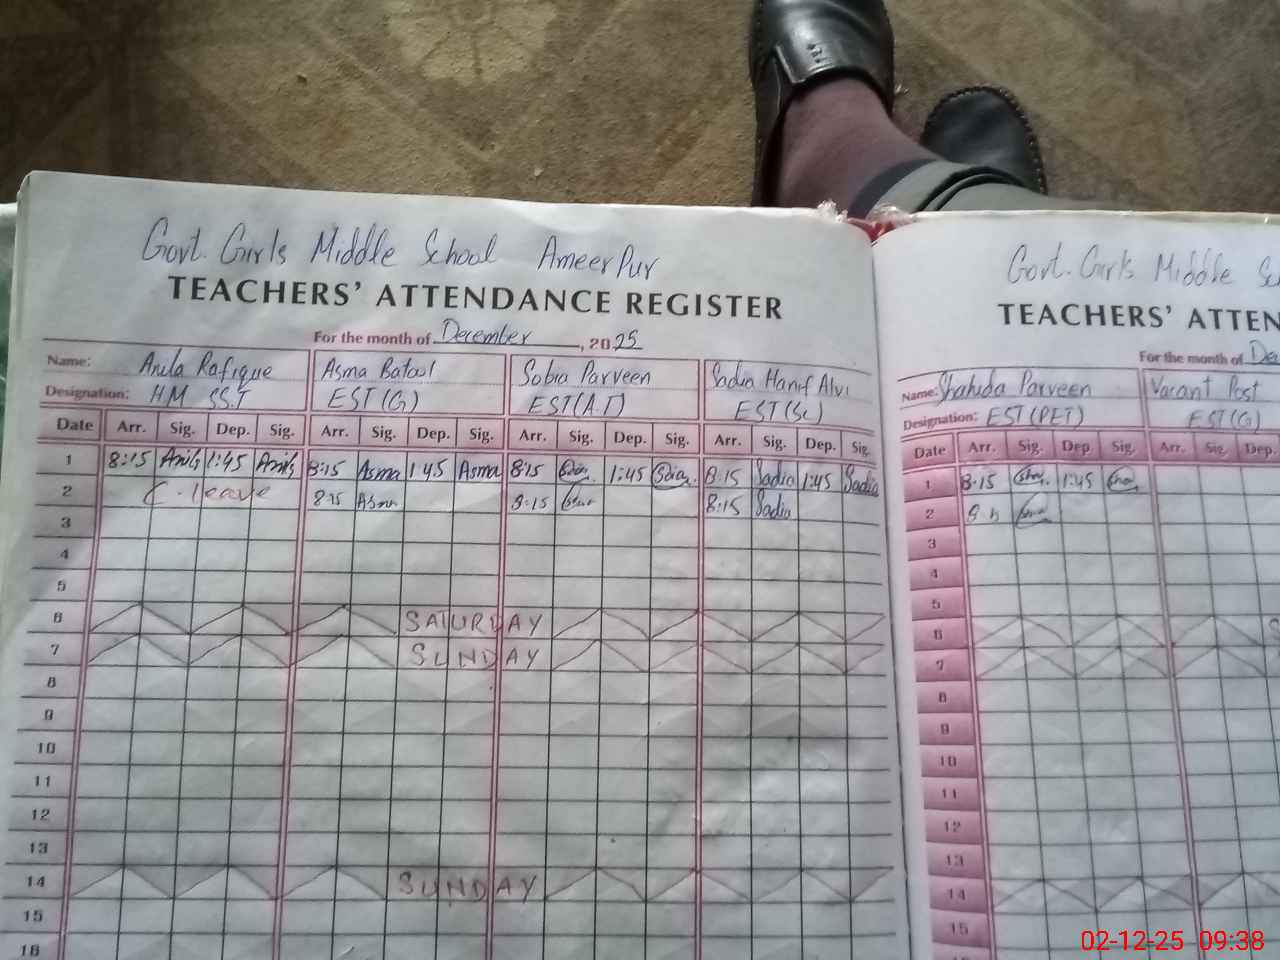 Govt. Girls Middle School AmeerPur
TEACHERS' ATTENDANCE REGISTER
For the month of December, 2025
Name: Anila Rafique Asma Batool Sobia Parveen Sadia Hanif Alvi
Designation: HM SST EST(G) EST(A.T) EST(Sc)
Date Arr. Sig. Dep. Sig. Arr. Sig. Dep. Sig. Arr. Sig. Dep. Sig. Arr. Sig. Dep. Sig.
1 8:15 Anila 1:45 Anila 8:15 Asma 1:45 Asma 8:15 1:45 8:15 Sadia 1:45 Sadia
2 C. leave 8:15 Asma 8:15 8:15 Sadia
3
4
5
6 SATURDAY
7 SUNDAY
8
9
10
11
12
13
14 SUNDAY
15
16
Govt. Girls Middle
TEACHERS' ATTEN
For the month of Dec
Name: Shahida Parveen Vacant Post
Designation: EST(PET) EST(G)
Date Arr. Sig. Dep. Sig. Arr. Sig. Dep.
1 8:15 1:45
2 8:15
3
4
5
6 S
7
8
9
10
11
12
13
14
15
02-12-25 09:38